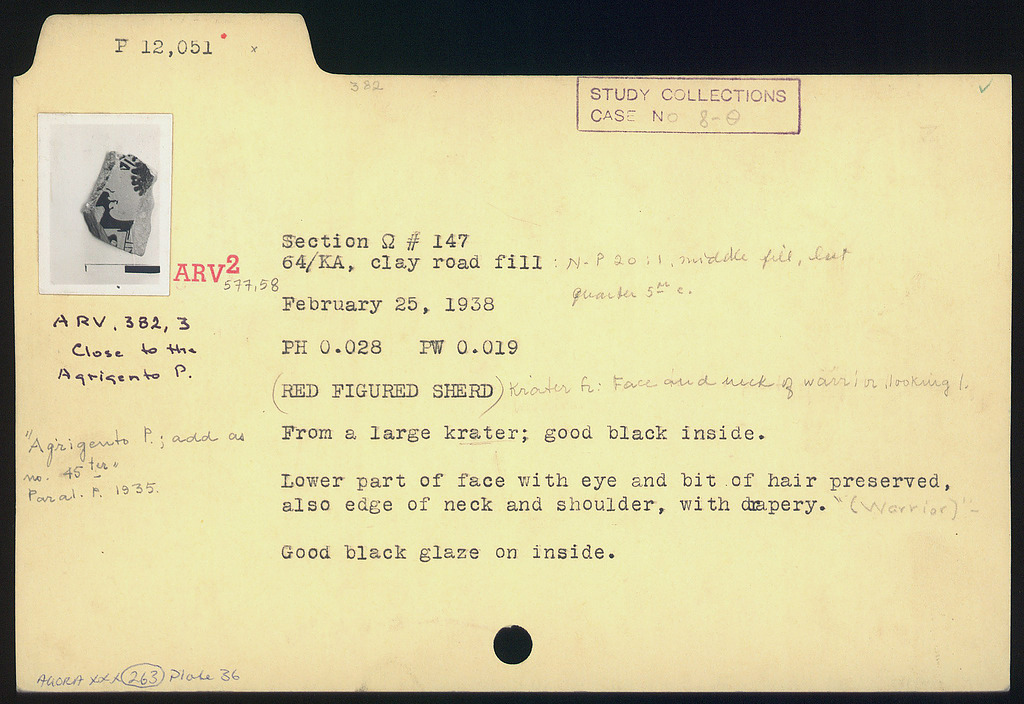 P 12,051 x
382
STUDY COLLECTIONS
CASE No 8-Θ
ARV2
577,58
ARV, 382, 3
Close to the
Agrigento P.
"Agrigento P.; add as
no. 45 ter"
Paral. P. 1935.
Section Ω # 147
64/KA, clay road fill : N-P 20:1, middle fill, last
quarter 5th c.
February 25, 1938
PH 0.028 PW 0.019
(RED FIGURED SHERD) Krater fr: Face and neck of warrior, looking l.
From a large krater; good black inside.
Lower part of face with eye and bit of hair preserved,
also edge of neck and shoulder, with drapery. "(Warrior)" -
Good black glaze on inside.
AGORA XXX 263 Plate 36